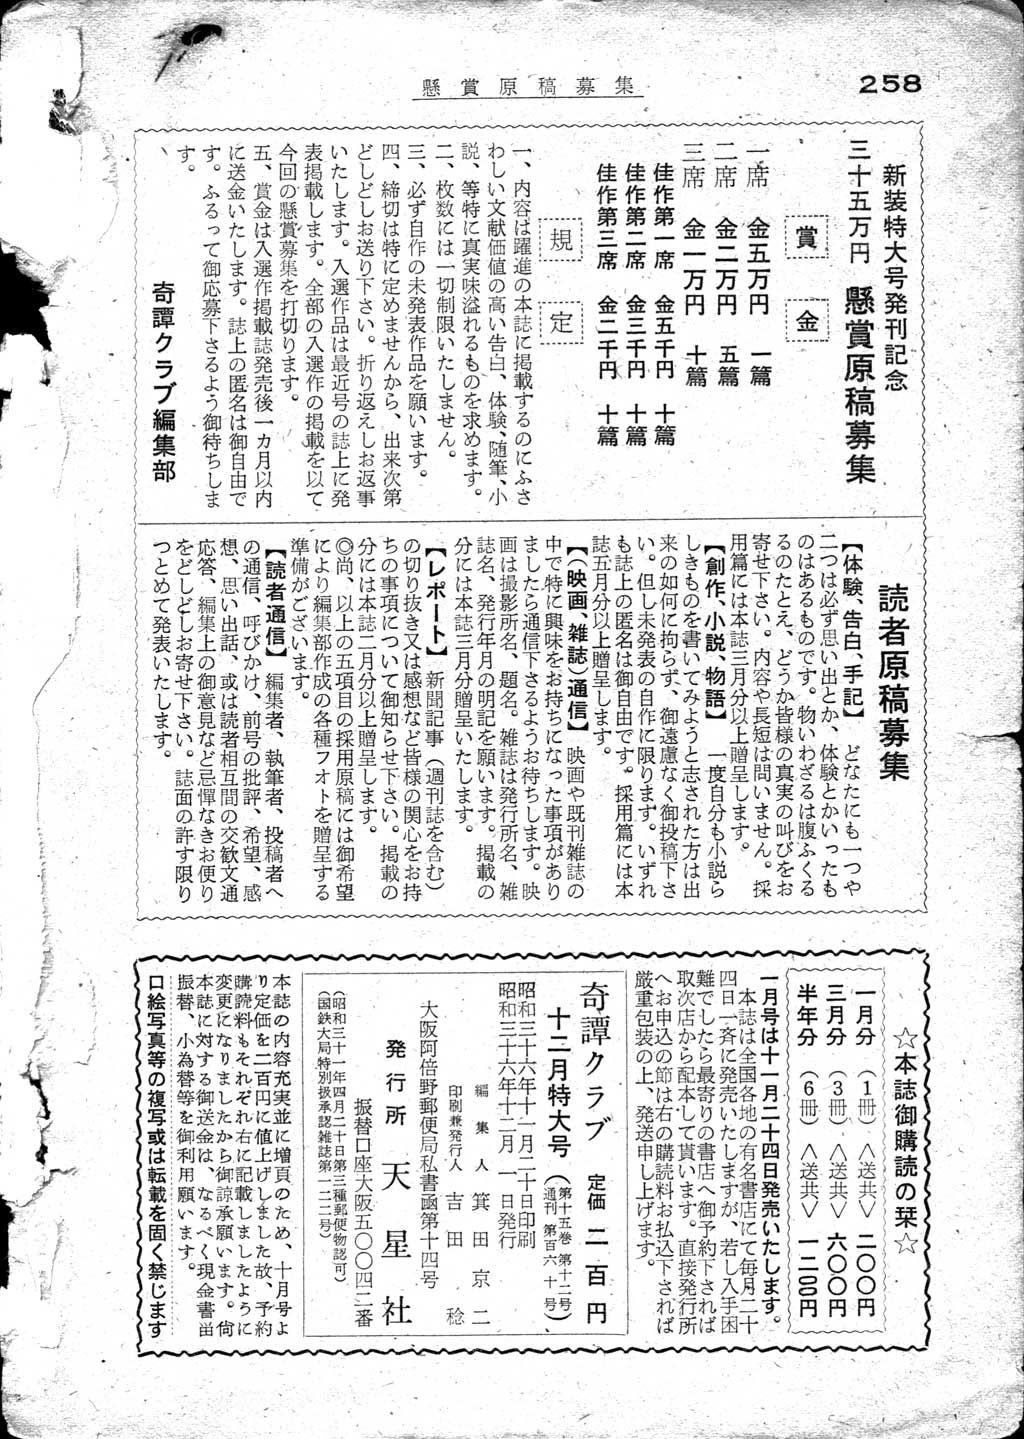 懸賞原稿募集
258
新装特大号発刊記念
三十五万円 懸賞原稿募集
賞金
一席 金五万円 一篇
二席 金二万円 五篇
三席 金一万円 十篇
佳作第一席 金五千円 十篇
佳作第二席 金三千円 十篇
佳作第三席 金二千円 十篇
規定
一、内容は躍進の本誌に掲載するのにふさ
わしい文献価値の高い告白、体験、随筆、小
説、等特に真実味溢れるものを求めます。
二、枚数には一切制限いたしません。
三、必ず自作の未発表作品を願います。
四、締切は特に定めませんから、出来次第
どしどしお送り下さい。折り返えしお返事
いたします。入選作品は最近号の誌上に発
表掲載します。全部の入選作の掲載を以て
今回の懸賞募集を打切ります。
五、賞金は入選作掲載誌発売後一カ月以内
に送金いたします。誌上の匿名は御自由で
す。ふるって御応募下さるよう御待ちしま
す。
奇譚クラブ編集部
読者原稿募集
【体験、告白、手記】 どなたにも一つや
二つは必ず思い出とか、体験とかいったも
のはあるものです。物いわざるは腹ふくる
るのたとえ、どうか皆様の真実の叫びをお
寄せ下さい。内容や長短は問いません。採
用篇には本誌三月分以上贈呈します。
【創作、小説、物語】 一度自分も小説ら
しきものを書いてみようと志された方は出
来の如何に拘らず、御遠慮なく御投稿下さ
い。但し未発表の自作に限ります。いずれ
も誌上の匿名は御自由です。採用篇には本
誌五月分以上贈呈します。
【(映画、雑誌)通信】 映画や既刊雑誌の
中で特に興味をお持ちになった事項があり
ましたら通信下さるようお待ちします。映
画は撮影所名、題名。雑誌は発行所名、雑
誌名、発行年月の明記を願います。掲載の
分には本誌三月分贈呈いたします。
【レポート】 新聞記事(週刊誌を含む)
の切り抜き又は感想など皆様の関心をお持
ちの事項について御知らせ下さい。掲載の
分には本誌二月分以上贈呈します。
◎尚、以上の五項目の採用原稿には御希望
により編集部作成の各種フォトを贈呈する
準備がございます。
【読者通信】 編集者、執筆者、投稿者へ
の通信、呼びかけ、前号の批評、希望、感
想、思い出話、或は読者相互間の交歓文通
応答、編集上の御意見など忌憚なきお便り
をどしどしお寄せ下さい。誌面の許す限り
つとめて発表いたします。
☆本誌御購読の栞☆
一月分 (1冊) <送共> 二〇〇円
三月分 (3冊) <送共> 六〇〇円
半年分 (6冊) <送共> 一二〇〇円
一月号は十一月二十四日発売いたします。
本誌は全国各地の有名書店にて毎月二十
四日一斉に発売いたしますが、若し入手困
難でしたら最寄りの書店へ御予約下されば
取次店から配本して貰います。直接発行所
へお申込の節は右の購読料お払込下されば
厳重包装の上、発送申し上げます。
奇譚クラブ 定価 二百円
十二月特大号 (第十五巻 第十二号)
(通刊 第百六十号)
昭和三十六年十一月二十日印刷
昭和三十六年十二月一日発行
編集人 箕田京二
印刷兼発行人 吉田稔
大阪阿倍野郵便局私書函第十四号
発行所 天星社
振替口座大阪五〇〇四二番
(昭和三十一年四月二十日第三種郵便物認可)
(国鉄大局特別扱承認雑誌第一二二号)
本誌の内容充実並に増頁のため、十月号よ
り定価を二百円に値上げしました故、予約
購読料もそれぞれ右に記載しましたように
変更になりましたから御諒承願います。尚
本誌に対する御送金は、なるべく現金書留
振替、小為替等を御利用願います。
口絵写真等の複写或は転載を固く禁じます